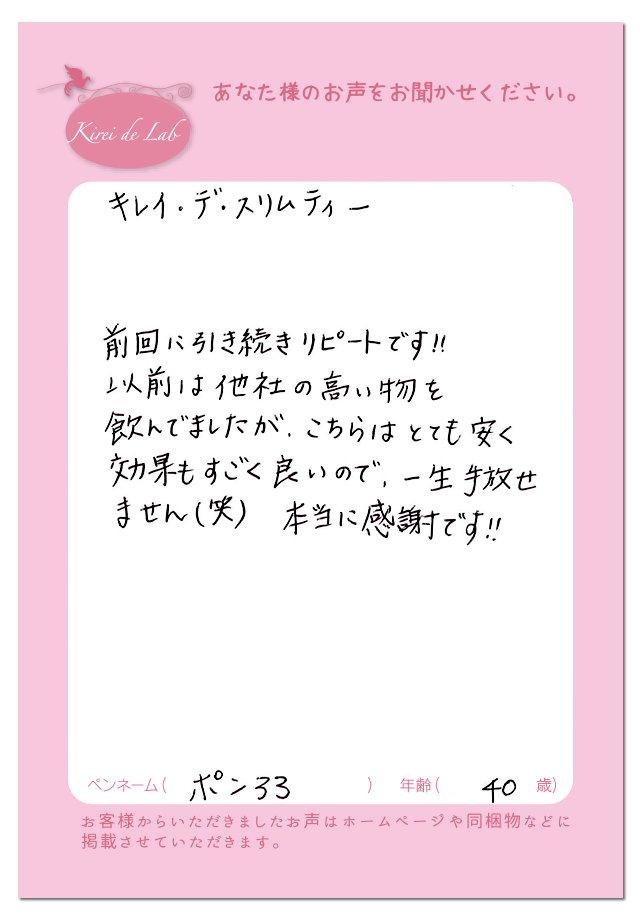 あなた様のお声をお聞かせください。
Kirei de Lab
キレイ・デ・スリムティー
前回に引き続きリピートです!!
以前は他社の高い物を
飲んでましたが、こちらはとても安く
効果もすごく良いので、一生手放せ
ません(笑) 本当に感謝です!!
ペンネーム( ポン33 ) 年齢( 40 歳)
お客様からいただきましたお声はホームページや同梱物などに
掲載させていただきます。